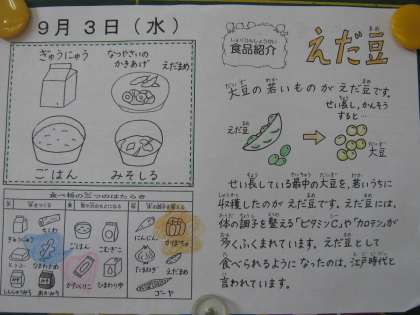 9月3日(水)
ぎゅうにゅう
なつやさいの
かきあげ
えだまめ
ごはん
みそしる
食べ物の三つのはたらき
にんじん
かぼちゃ
たまねぎ
えだまめ
ゴーヤ
ぎゅうにゅう
ちくわ
とうふ
ごはん
こむぎこ
かたくりこ
ひまわりゆ
しょくひんしょうかい
食品紹介
えだ豆
まめ
大豆の若いものがえだ豆です。
せい長し、かんそう
すると…
えだ豆
大豆
せい長している最中の大豆を、若いうちに
収穫したのがえだ豆です。えだ豆には、
体の調子を整える「ビタミンC」や「カロテン」が
多くふくまれています。えだ豆として
食べられるようになったのは、江戸時代と
言われています。